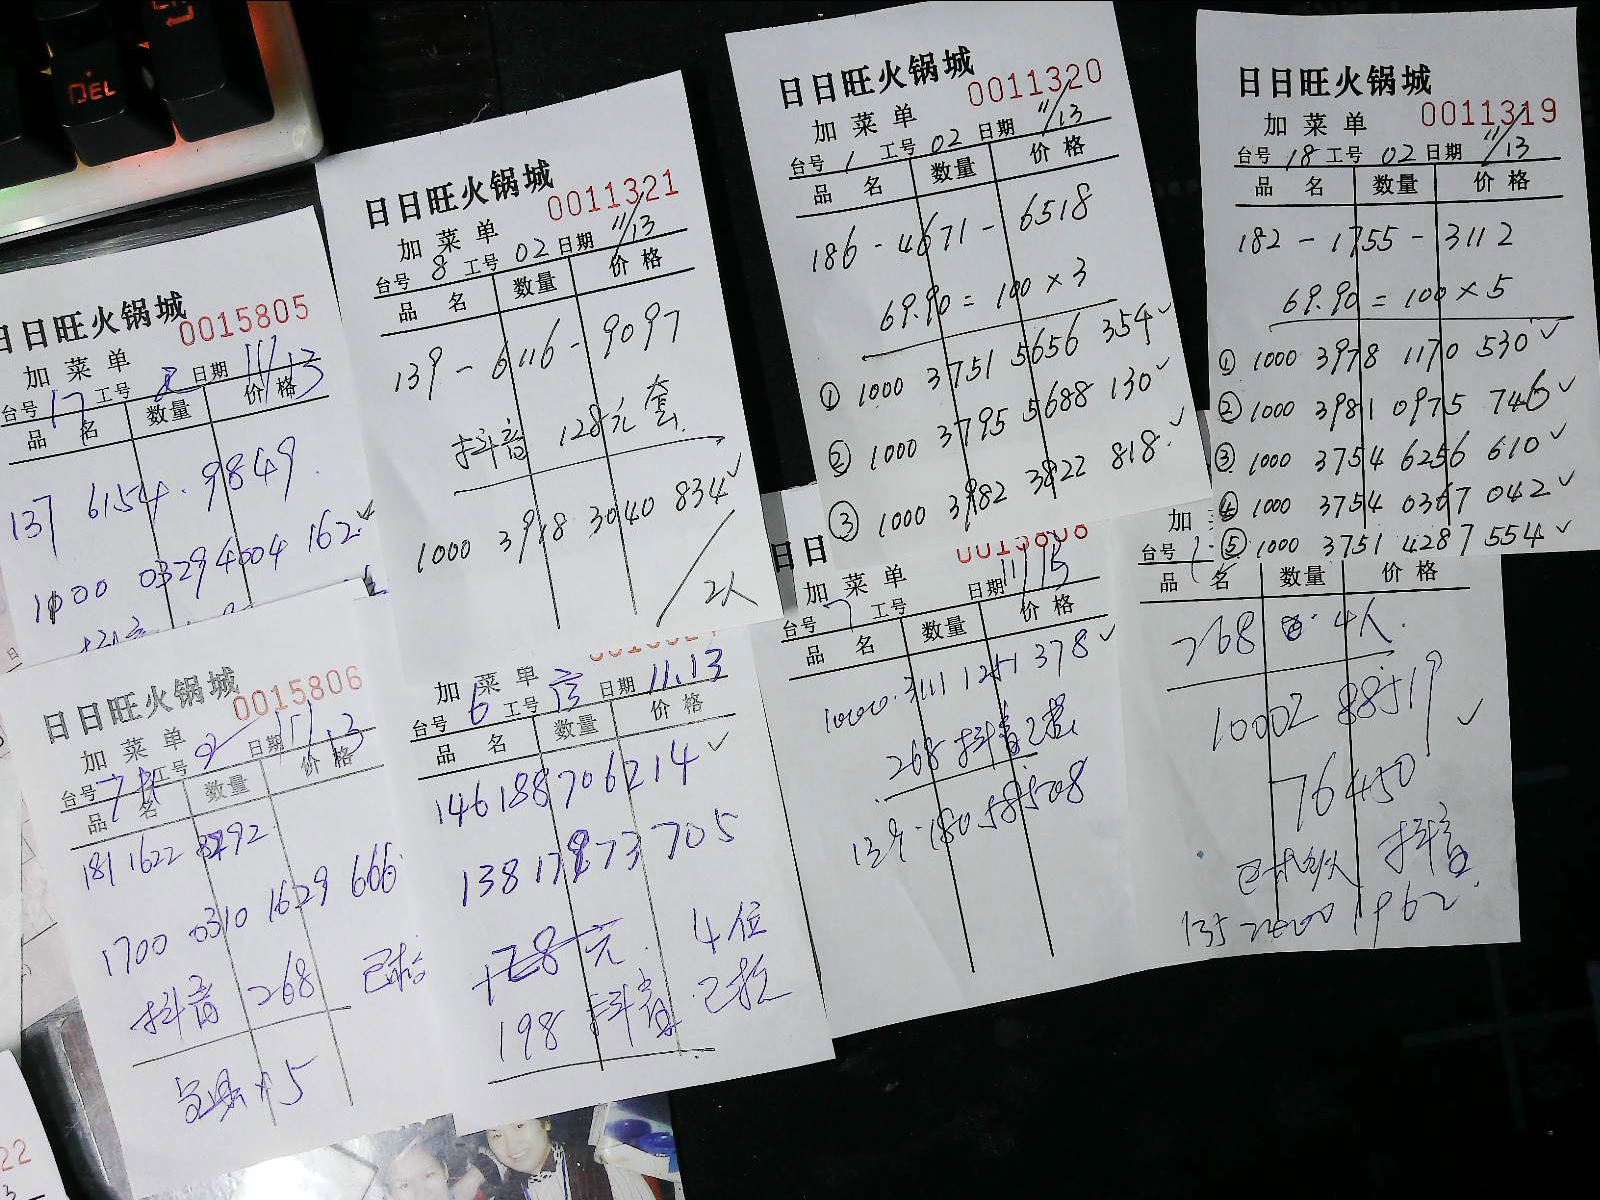 DEL
日日旺火锅城
0015805
加菜单
台号 17 工号 2 日期 11/13
品名 数量 价格
137 6154.9849.
1000 0329 4004 162.✓
日日旺火锅城
0011321
加菜单
台号 8 工号 02 日期 11/13
品名 数量 价格
139-6116-9097
抖音 128元套
1000 3918 3040 834✓
2人
日日旺火锅城
0011320
加菜单
台号 1 工号 02 日期 11/13
品名 数量 价格
186-4671-6518
69.90=100×3
① 1000 3751 5656 354✓
② 1000 3795 5688 130✓
③ 1000 3982 3822 818.✓
日日旺火锅城
0011319
加菜单
台号 18 工号 02 日期 11/13
品名 数量 价格
182-1755-3112
69.90=100×5
① 1000 3978 1170 530✓
② 1000 3981 0975 746✓
③ 1000 3754 6256 610✓
④ 1000 3754 0367 042✓
⑤ 1000 3751 4287 554✓
日日旺火锅城
0015806
加菜单
台号 工号 2 日期 11/13
品名 数量 价格
181 1622 8792
1700 0310 1629 666.
抖音 268 已验
×5
加菜单
台号 6 工号 13 日期 11.13
品名 数量 价格
146188706214✓
138 17873705
128元. 4位
198 抖音 已验
日日
加菜单
台号 7 工号 日期 11/15
品名 数量 价格
1000.3111 1251 378✓
268 抖音已验
139-180.58508
加
台号
品名 数量 价格
268 4人.
10002 88519 ✓
76450
抖音
135 1962.
22